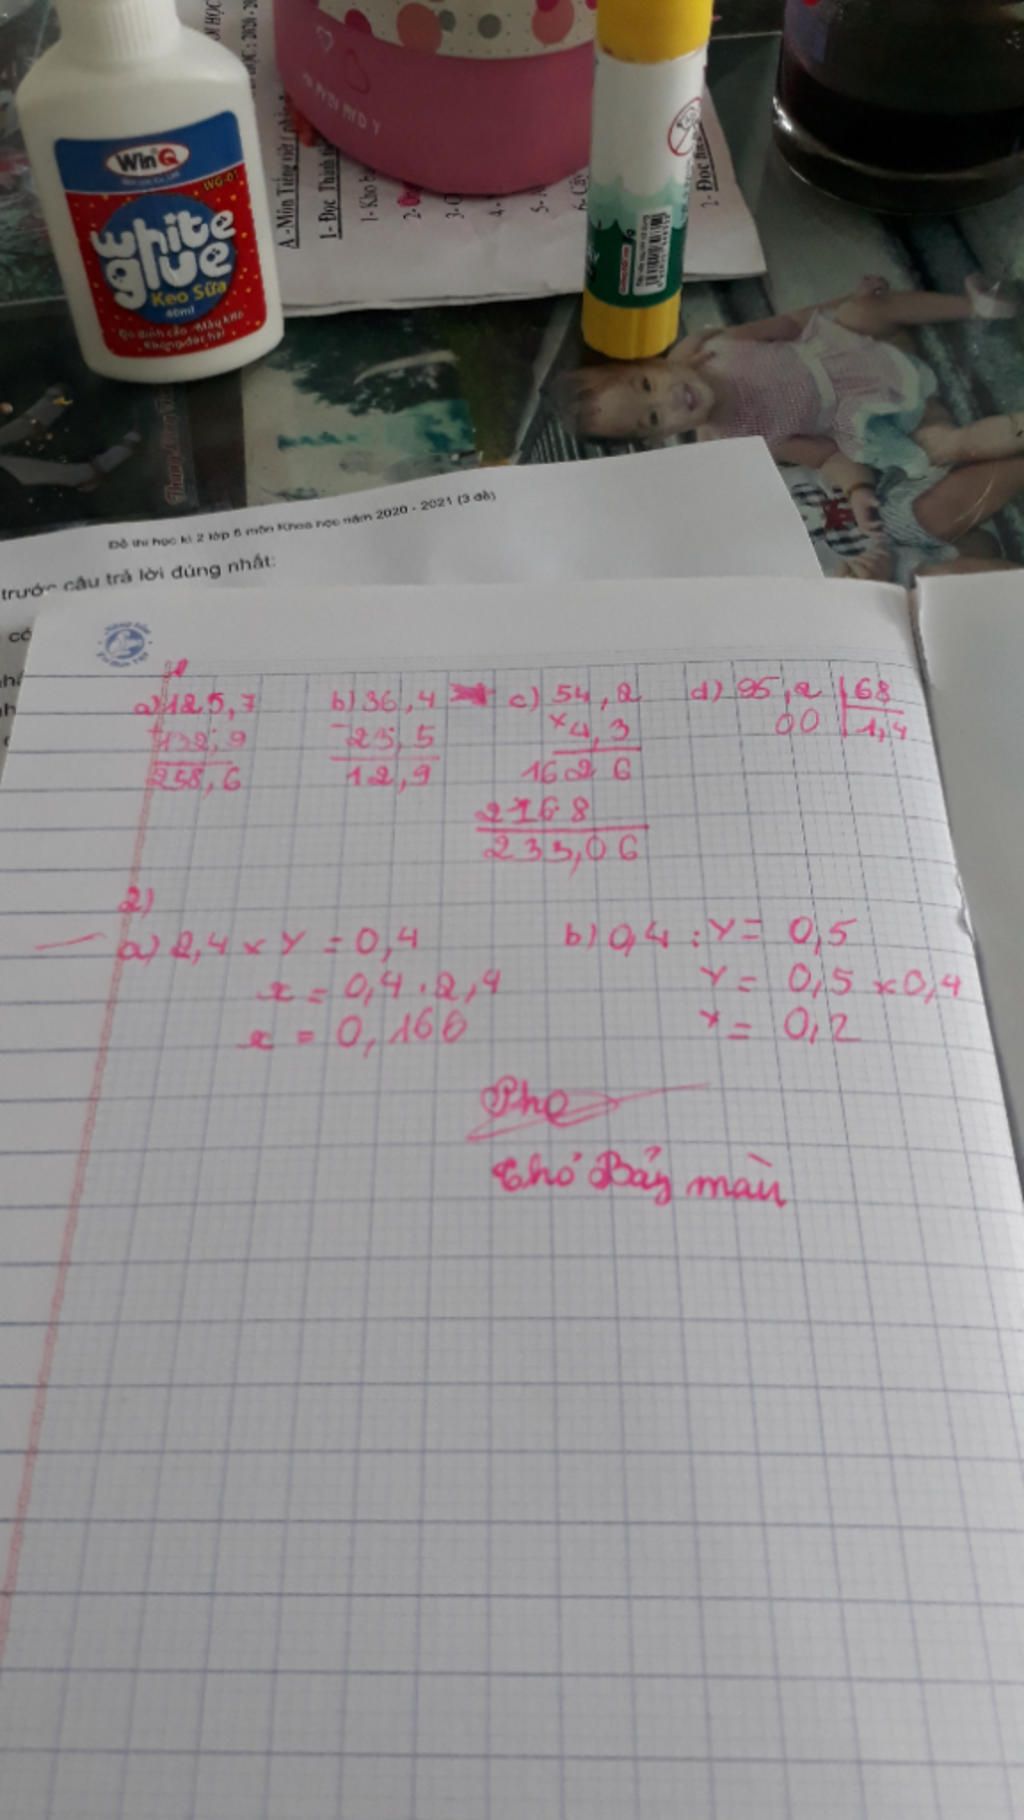 WinQ
WG-01
white
glue
Keo Sữa
40ml
A -Môn Tiếng việt
1- Đọc Thành
1- Kho
2-
3-
4-
5-
6- Cây
2- Đọc
Đề thi học kì 2 lớp 5 môn Khoa học năm 2020 - 2021 (3 đề)
trước câu trả lời đúng nhất:
có
a) 125,7
132,9
258,6
b) 36,4
- 23,5
12,9
c) 54,2
x 4,3
1626
2168
233,06
d) 95,2 68
00 1,4
2)
a) 2,4 x Y = 0,4
x = 0,4 . 2,4
x = 0,166
b) 0,4 : Y = 0,5
Y = 0,5 x 0,4
Y = 0,2
Thỏ Bảy màu